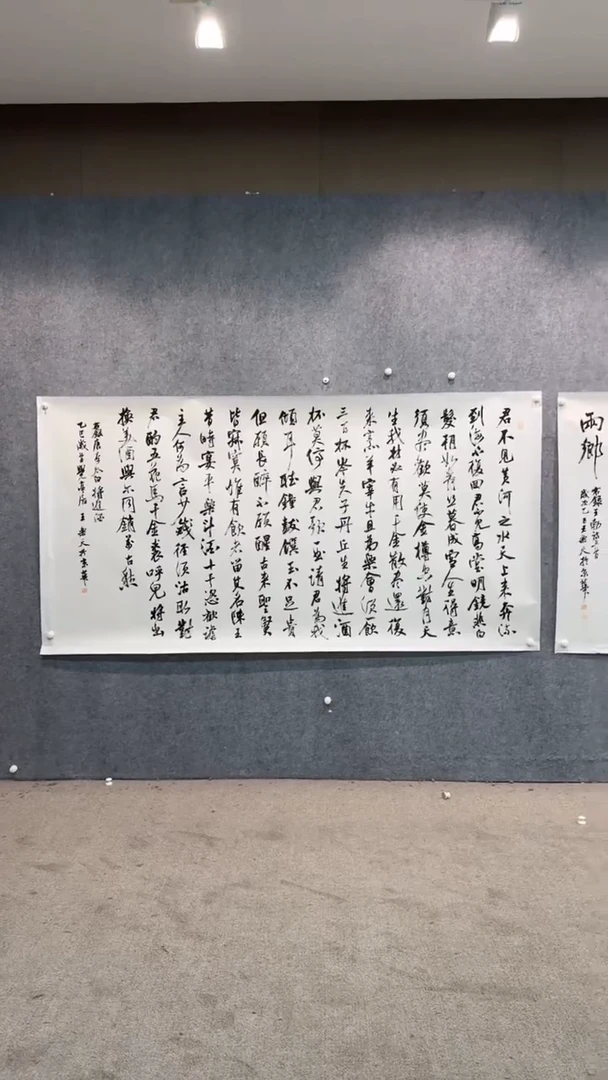 君不見黃河之水天上來奔流
到海不復回君不見高堂明鏡悲白
髮朝如青絲暮成雪人生得意
須盡歡莫使金樽空對月天
生我材必有用千金散盡還復
來烹羊宰牛且為樂會須一飲
三百杯岑夫子丹丘生將進酒
杯莫停與君歌一曲請君為我
傾耳聽鐘鼓饌玉不足貴
但願長醉不願醒古來聖賢
皆寂寞惟有飲者留其名陳王
昔時宴平樂斗酒十千恣歡謔
主人何為言少錢徑須沽取對
君酌五花馬千金裘呼兒將出
換美酒與爾同銷萬古愁
右錄唐李太白將進酒
乙巳歲首 王 於京華
兩鄉
右錄王勃
歲次乙巳王 於京華